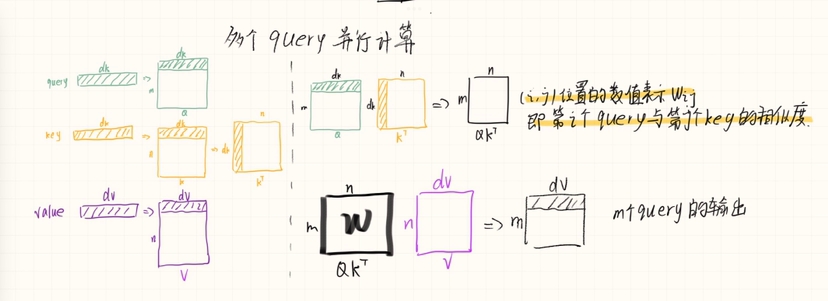 多个 query 并行计算
query dk => dk m Q
key dk => dk n k n dk kᵀ
value dv => dv n V
dk m Q n dk kᵀ => n m Qkᵀ
(i,j)位置的数值表示 Wij
即第i个query与第j个key的相似度.
n m W Qkᵀ dv n V => dv m
m个query的输出